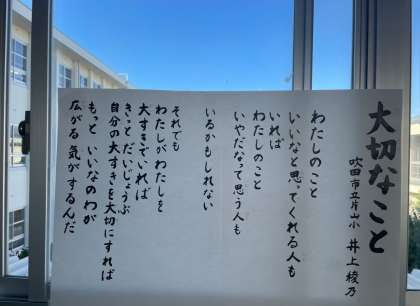 大切なこと
吹田市立片山小 井上稜乃
わたしのこと
いいなと思ってくれる人も
いれば
わたしのこと
いやだなって思う人も
いるかもしれない
それでも
わたしがわたしを
大すきでいれば
きっとだいじょうぶ
自分の大すきを大切にすれば
もっといいなのわが
広がる気がするんだ